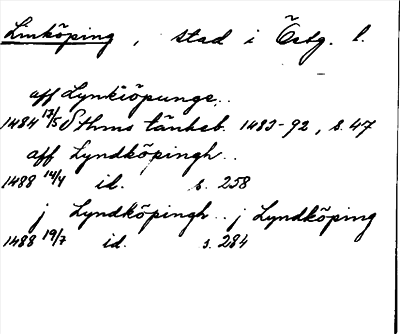 Linköping, stad i Östg. l.
aff Lynkiöpunge..
1484 17/5 Sthms tänkeb. 1483-92, s. 47
aff Lyndköpingh..
1488 14/4 id. s. 258
j Lyndköpingh.. j Lyndköping
1488 19/7 id. s. 284